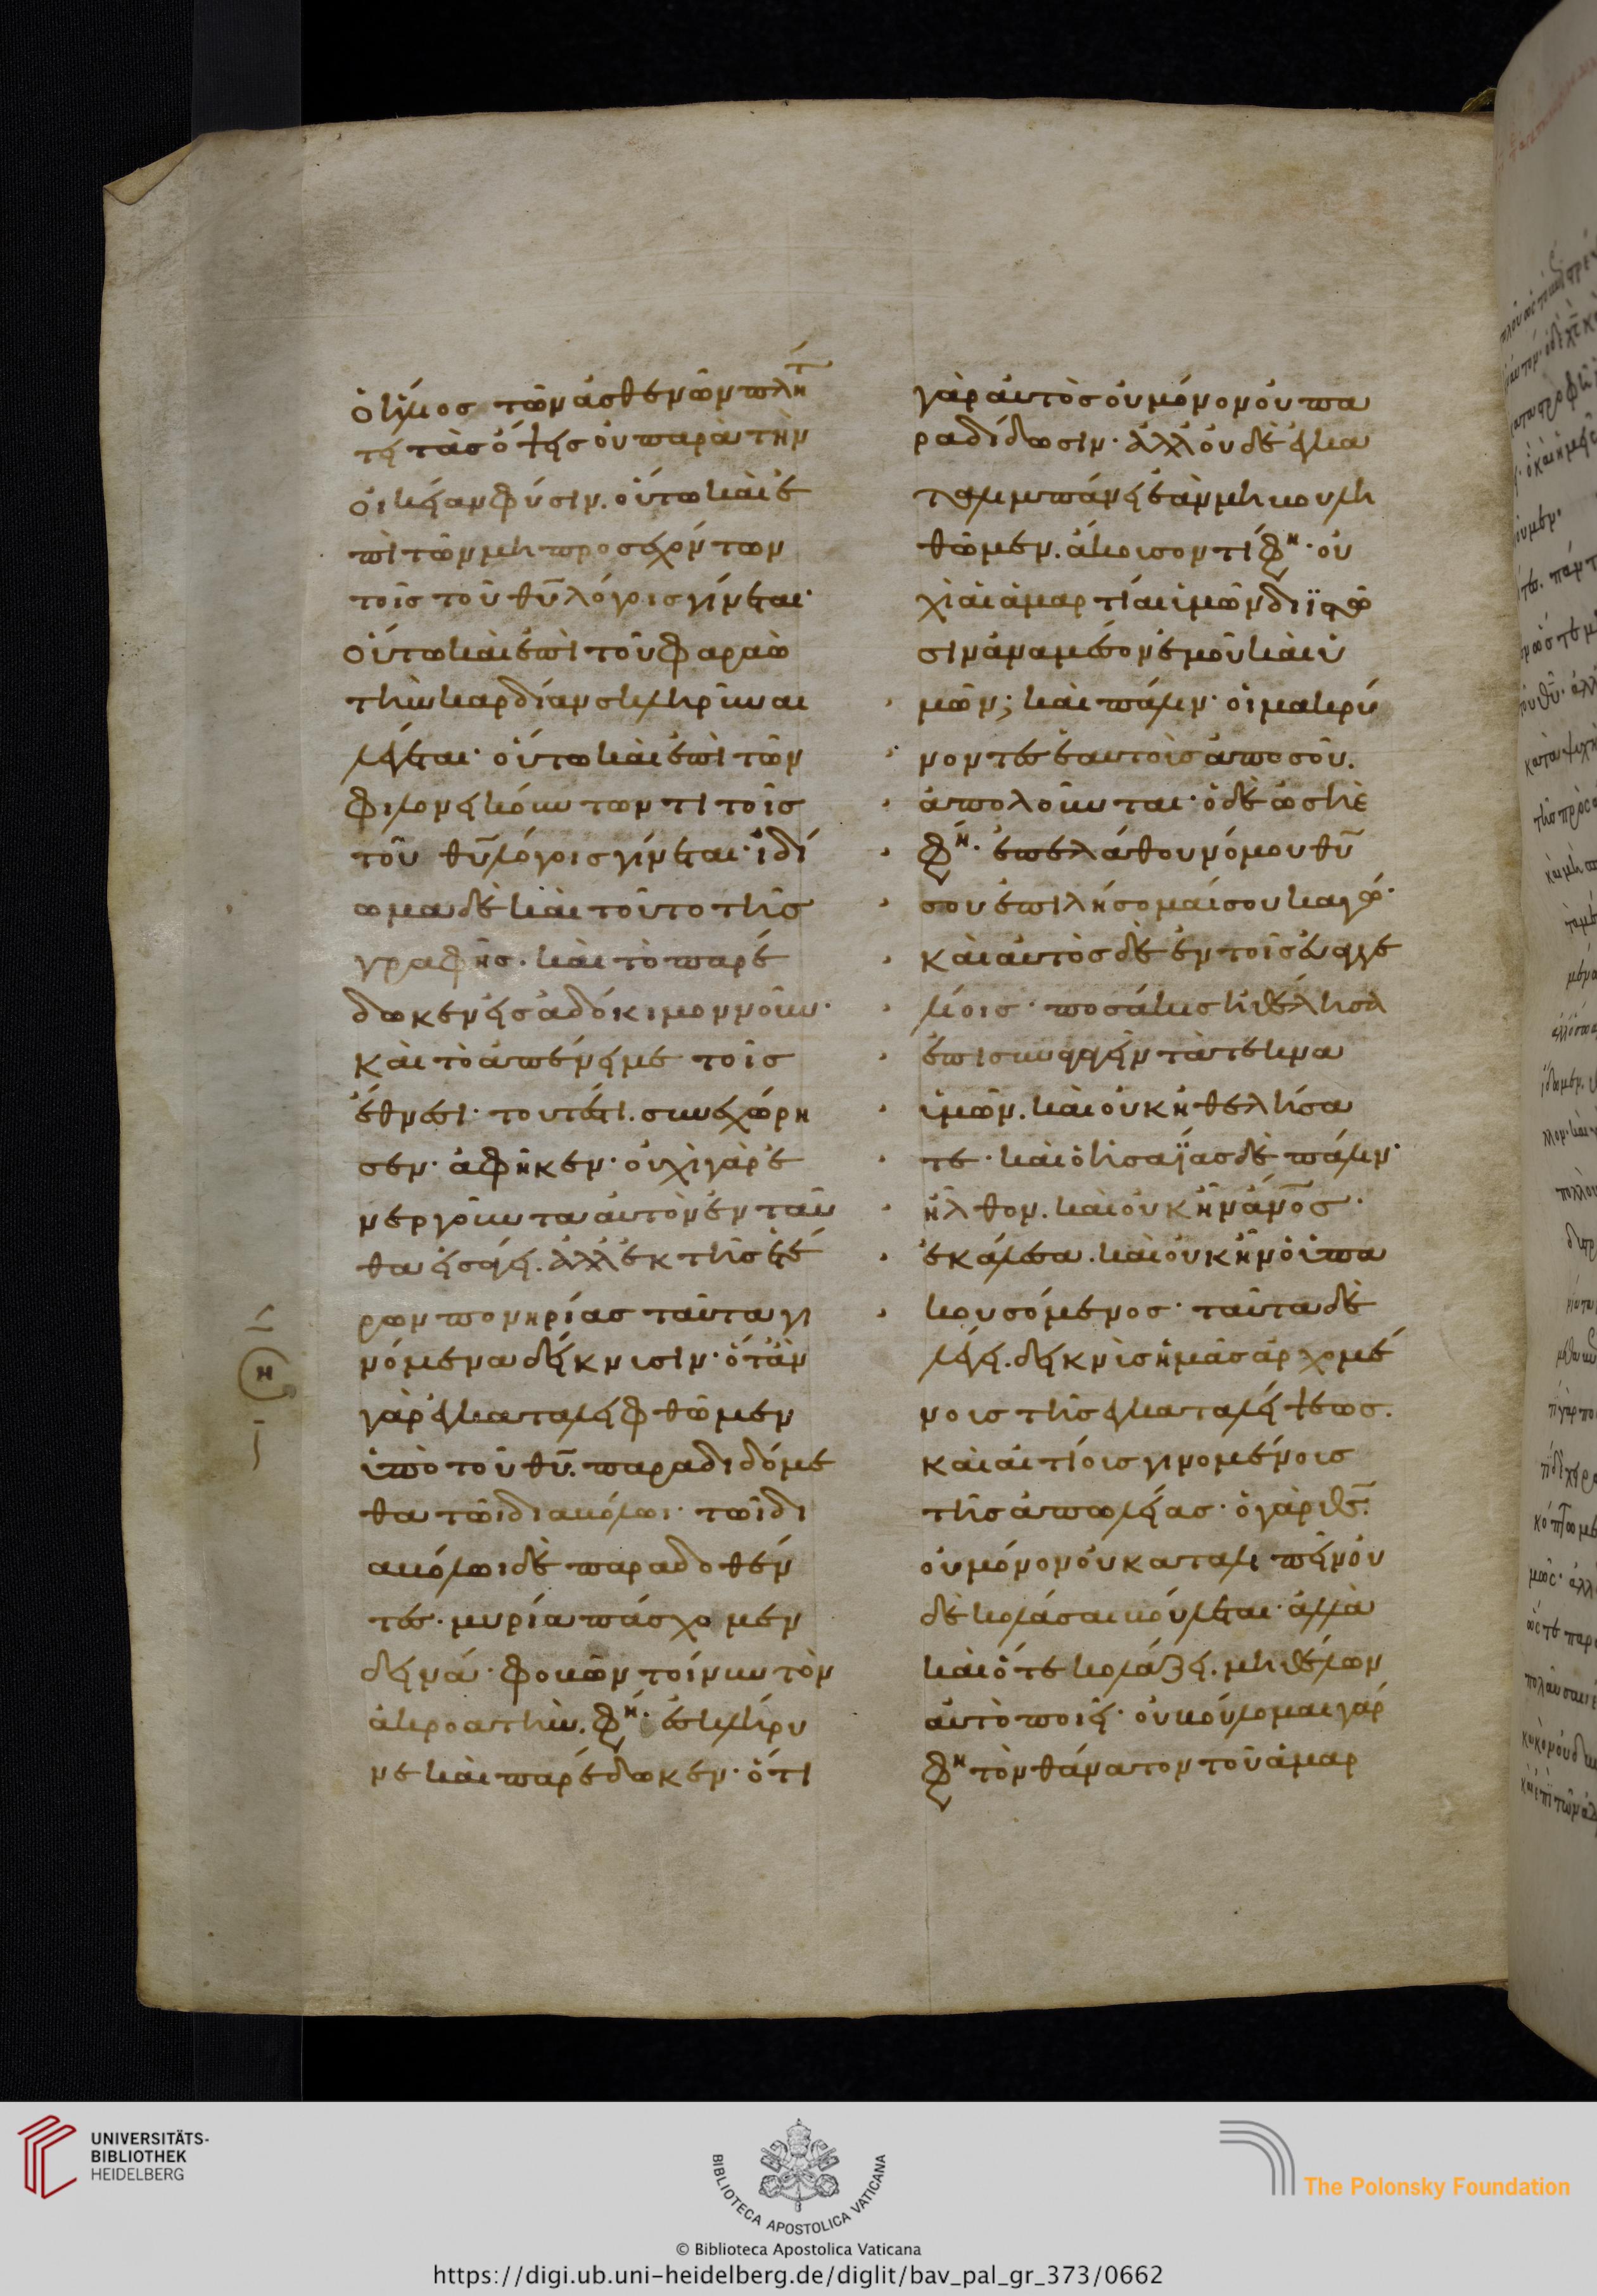 ὁ ἥλιος τῶν ἀσθενῶν πλήτ
τει τὰς ὄψεις οὐ παρὰ τὴν
οἰκείαν φύσιν. οὕτω καὶ ἐ
πὶ τῶν μὴ προσεχόντων
τοῖς τοῦ θυ λόγοις γίνεται·
οὕτω καὶ ἐπὶ τοῦ φαραὼ
τὴν καρδίαν σκληρῦναι
λέγεται· οὕτω καὶ ἐπὶ τῶν
φιλονεικούντων τι τοῖς
τοῦ θυ λόγοις γίνεται· ἰδί
ωμα δὲ καὶ τοῦτο τῆς
γραφῆς· καὶ τὸ παρέ
δωκεν εἰς ἀδόκιμον νοῦν·
καὶ τὸ ἀπένειμε τοῖς
ἔθνεσι· τουτέστι. συνεχώρη
σεν· ἀφῆκεν· οὐχὶ γὰρ ἐ
νεργοῦντα αὐτὸν ἐνταῦ
θα εἰσάγει. ἀλλ' ἐκ τῆς ἑτέ
ρων πονηρίας ταῦτα γι
νόμενα δείκνυσιν· ὅταν
γὰρ ἐγκαταλειφθῶμεν
ὑπὸ τοῦ θυ. παραδιδόμε
θα τῶι διαβόλωι· τῶι δι
αβόλωι δὲ παραδοθέν
τες· μυρία πάσχομεν
δεινά· φοβῶν τοίνυν τὸν
ἀκροατὴν. φη· ἐσκλήρυ
νε καὶ παρέδωκεν· ὅτι
γὰρ αὐτὸς οὐ μόνον οὐ πα
ραδίδωσιν· ἀλλ' οὐδὲ ἐγκα
ταλιμπάνει ἐὰν μὴ βουλη
θῶμεν. ἄκουσον τί φη· οὐ
χὶ αἱ ἁμαρτίαι ὑμῶν διϊστῶ
σιν ἀναμέσον ἐμοῦ καὶ ὑ
μῶν; καὶ πάλιν· οἱ μακρύ
νοντες ἑαυτοὺς ἀπὸ σοῦ.
ἀπολοῦνται· ὁ δὲ ὡσηὲ
φη· ἐπελάθου νόμου θυ
σου ἐπιλήσομαί σου καγώ·
καὶ αὐτὸς δὲ ἐν τοῖς εὐαγγε
λίοις· ποσάκις ἠθέλησα
ἐπισυναγαγεῖν τὰ τέκνα
ὑμῶν. καὶ οὐκ ἠθελήσα
τε· καὶ ὁ ἠσαΐας δὲ πάλιν·
ἦλθον. καὶ οὐκ ἦν ἄνος·
ἐκάλεσα. καὶ οὐκ ἦν ὁ ὑπα
κουσόμενος· ταῦτα δὲ
λέγει. δεικνὺς ἡμᾶς ἀρχομέ
νους τῆς ἐγκαταλείψεως.
καὶ αἰτίους γινομένους
τῆς ἀπωλείας· ὁ γὰρ θς.
οὐ μόνον οὐ καταλιπεῖν οὐ
δὲ κολάσαι βούλεται· ἀλλὰ
καὶ ὅτε κολάζει. μὴ θέλων
αὐτὸ ποιεῖ· οὐ βούλομαι γάρ
φη τὸν θάνατον τοῦ ἁμαρ
UNIVERSITÄTS-
BIBLIOTHEK
HEIDELBERG
BIBLIOTECA APOSTOLICA VATICANA
The Polonsky Foundation
© Biblioteca Apostolica Vaticana
https://digi.ub.uni-heidelberg.de/diglit/bav_pal_gr_373/0662